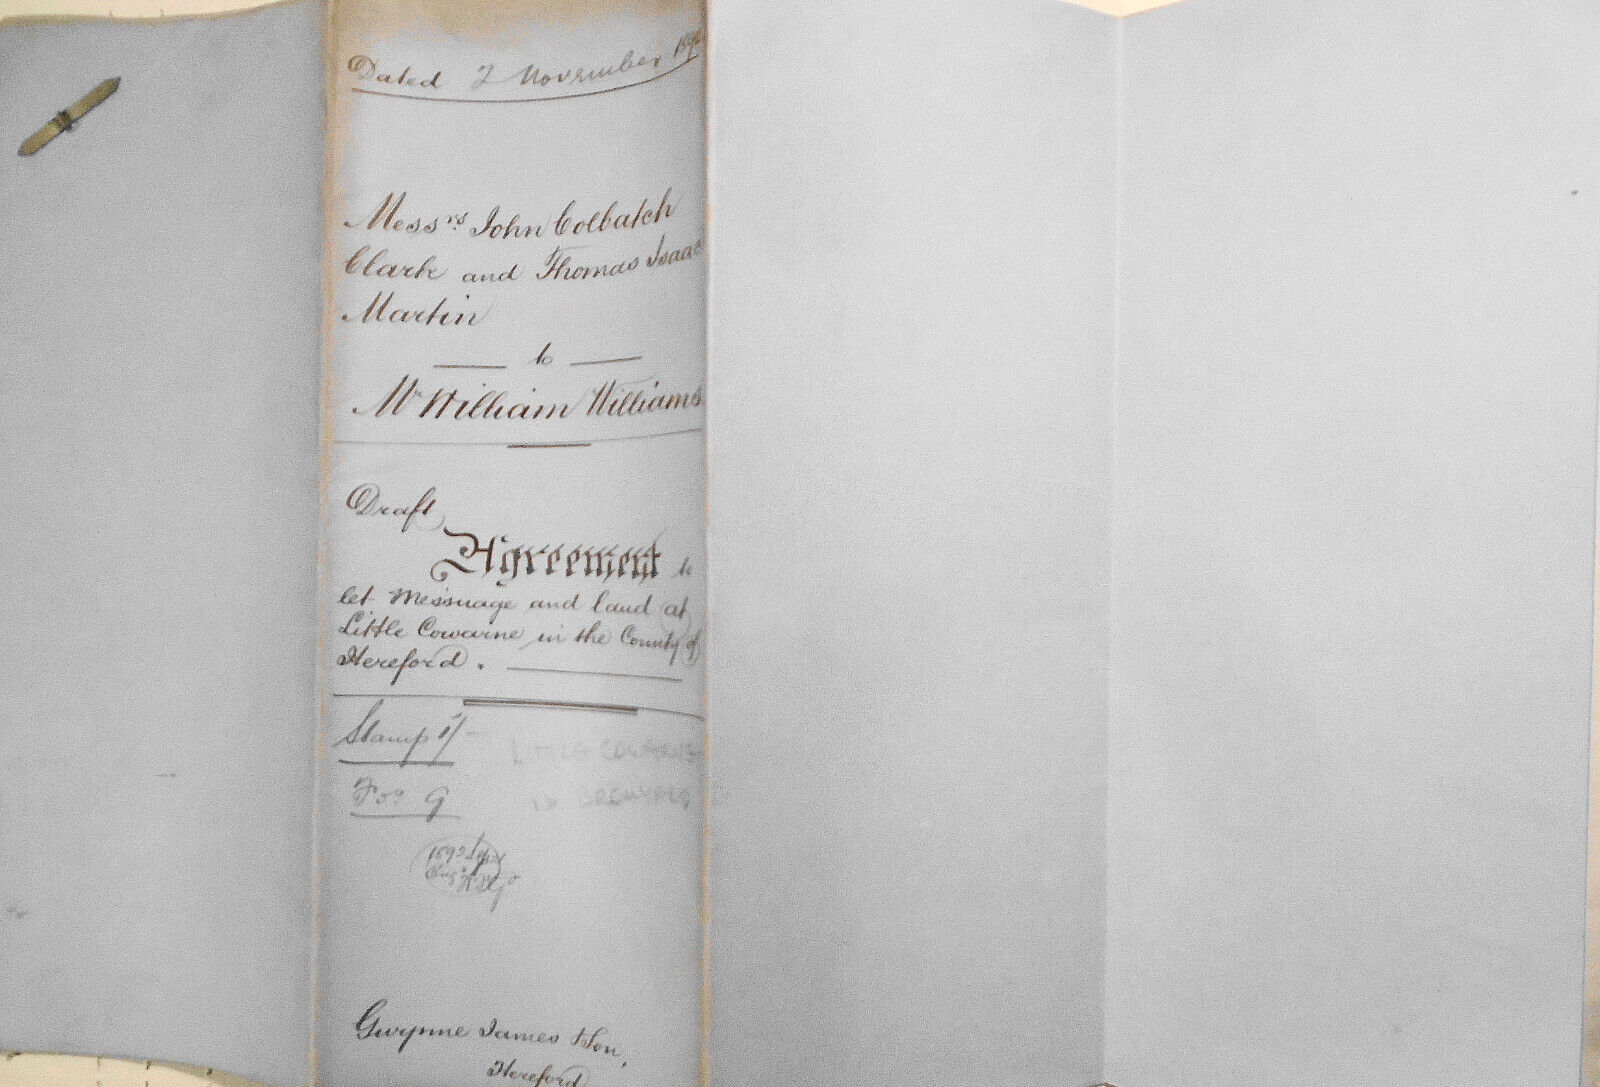 Dated 2 November
Messrs. John Colbatch
Clark and Thomas Isaac
Martin
to
Mr William Williams
Draft
Agreement to
let Messuage and land at
Little Cowarne in the County of
Hereford.
Stamp 1/-
LITTLE COWARNE
Fo. 9
Gwynne James & Son,
Hereford